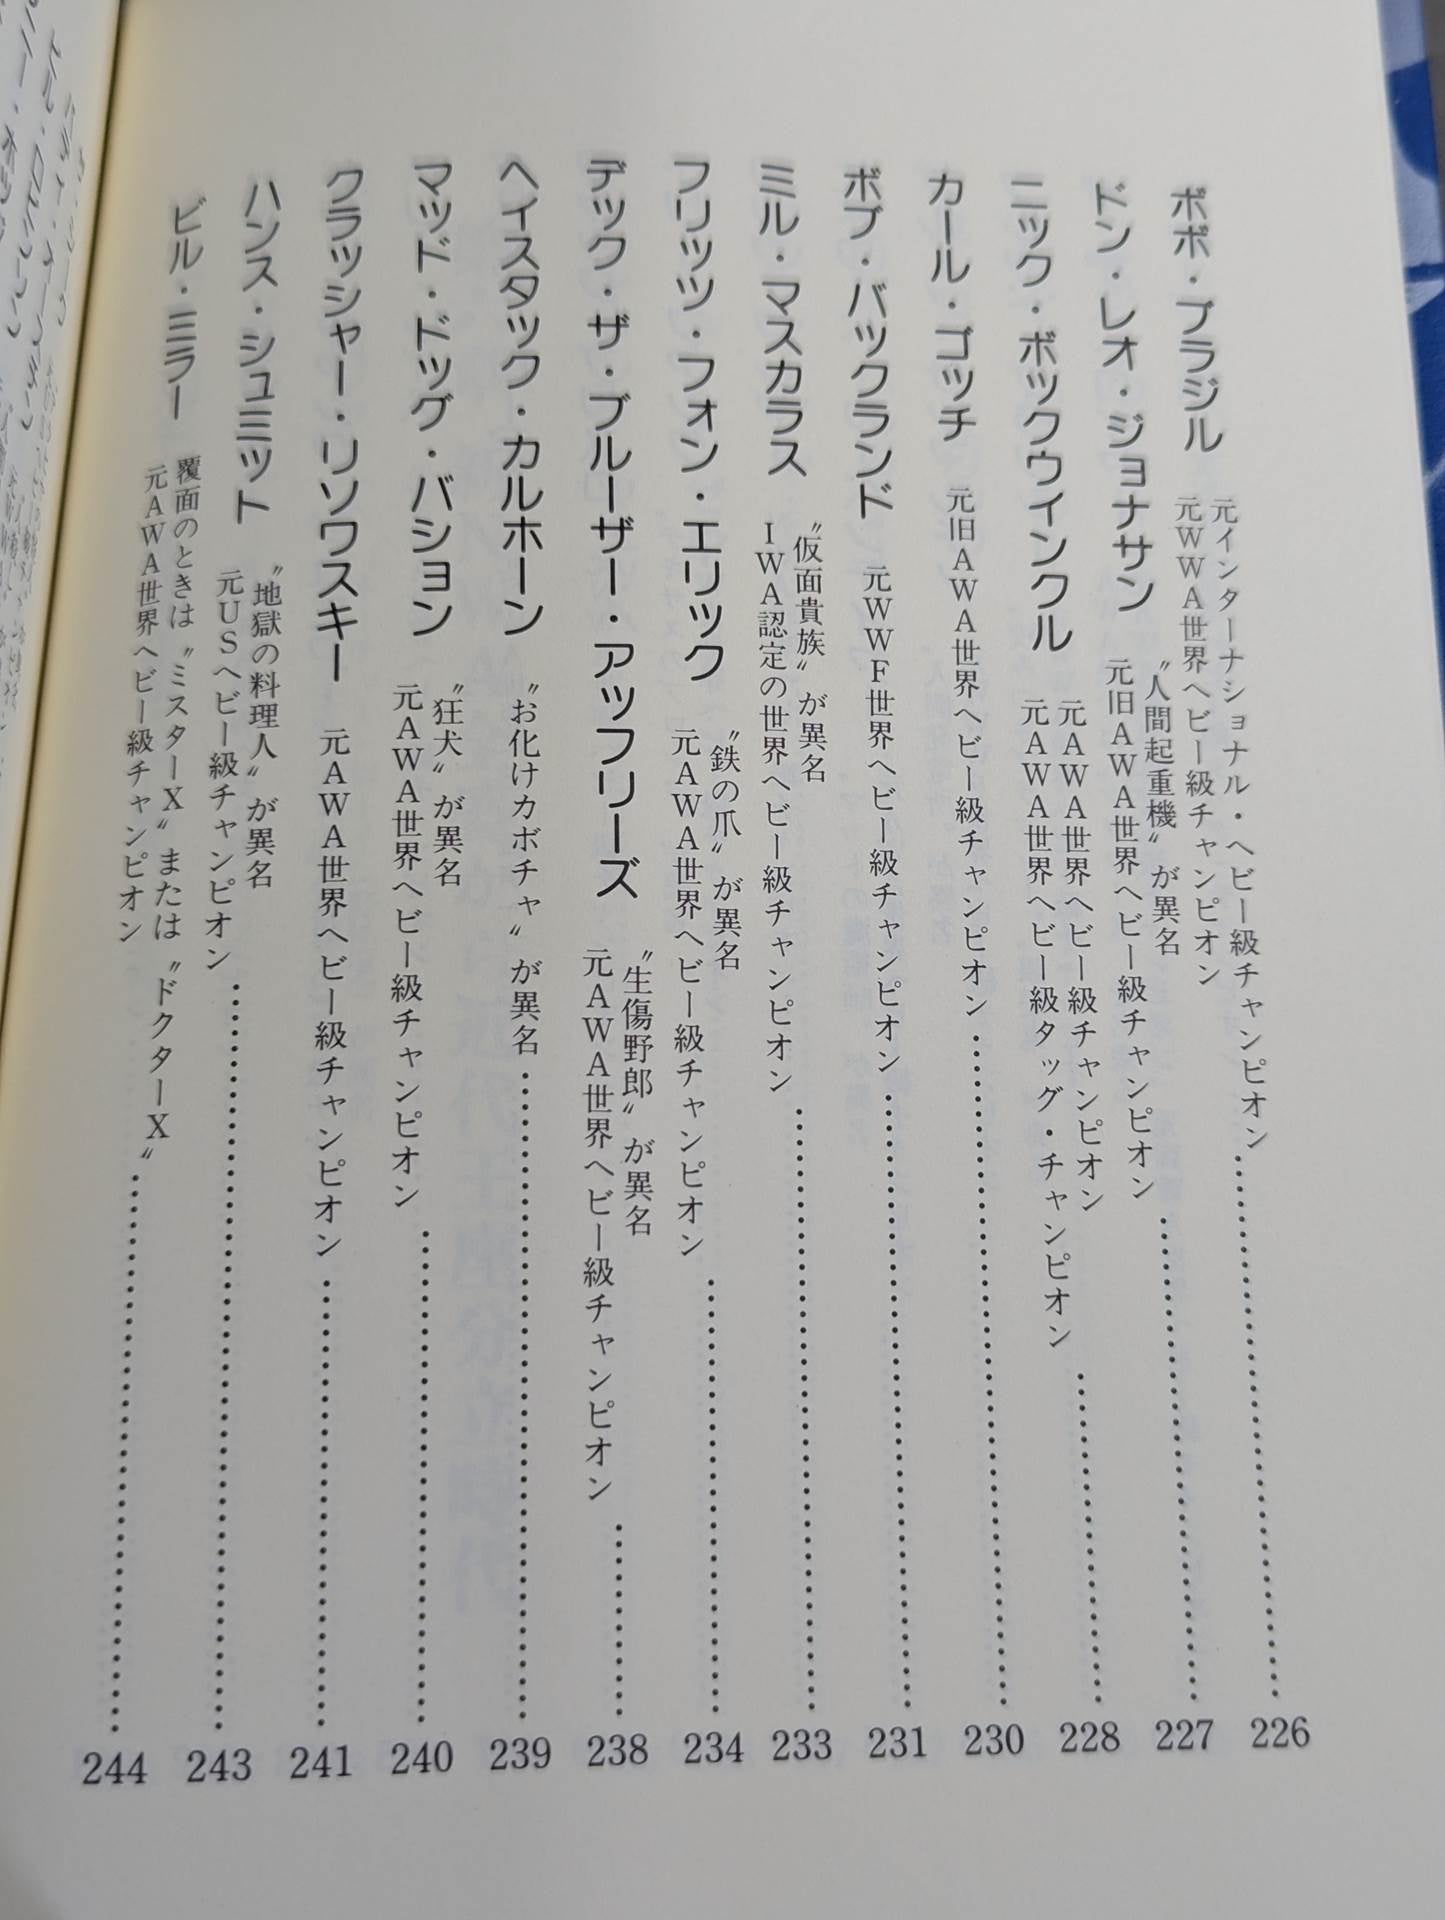 ボボ・ブラジル
元インターナショナル・ヘビー級チャンピオン
元WWA世界ヘビー級チャンピオン
226
ドン・レオ・ジョナサン
〝人間起重機〟が異名
元旧AWA世界ヘビー級チャンピオン
227
ニック・ボックウインクル
元AWA世界ヘビー級チャンピオン
元AWA世界ヘビー級タッグ・チャンピオン
228
カール・ゴッチ
元旧AWA世界ヘビー級チャンピオン
230
ボブ・バックランド
元WWF世界ヘビー級チャンピオン
231
ミル・マスカラス
〝仮面貴族〟が異名
IWA認定の世界ヘビー級チャンピオン
233
フリッツ・フォン・エリック
〝鉄の爪〟が異名
元AWA世界ヘビー級チャンピオン
234
デック・ザ・ブルーザー・アッフリーズ
〝生傷野郎〟が異名
元AWA世界ヘビー級チャンピオン
238
ヘイスタック・カルホーン
〝お化けカボチャ〟が異名
239
マッド・ドッグ・バション
〝狂犬〟が異名
元AWA世界ヘビー級チャンピオン
240
クラッシャー・リソワスキー
元AWA世界ヘビー級チャンピオン
241
ハンス・シュミット
〝地獄の料理人〟が異名
元USヘビー級チャンピオン
243
ビル・ミラー
覆面のときは〝ミスターX〟または〝ドクターX〟
元AWA世界ヘビー級チャンピオン
244